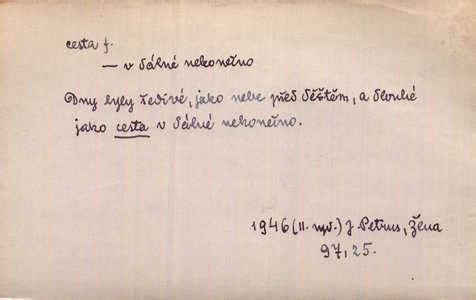 cesta f.
— v dálné nekonečno
Dny byly šedivé, jako nebe před děštěm, a dlouhé
jako cesta v dálné nekonečno.
1946 (II. vyd.) J Petrus, Žena
97, 25.